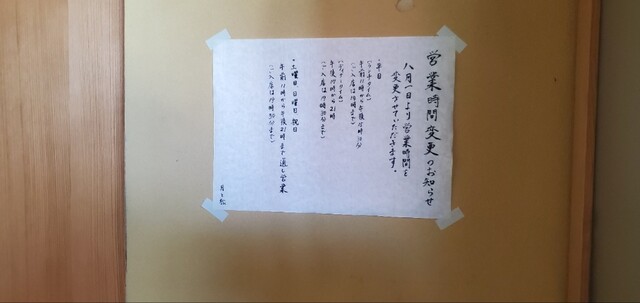 営業時間変更のお知らせ
八月一日より営業時間を
変更させていただきます。
・平日
(ランチタイム)
午前11時から午後15時
(ご入店は14時まで)
(ディナータイム)
午後17時から21時
(ご入店は19時30分まで)
・土曜日、日曜日、祝日
午前11時から午後21時まで通し営業
(ご入店は19時30分まで)